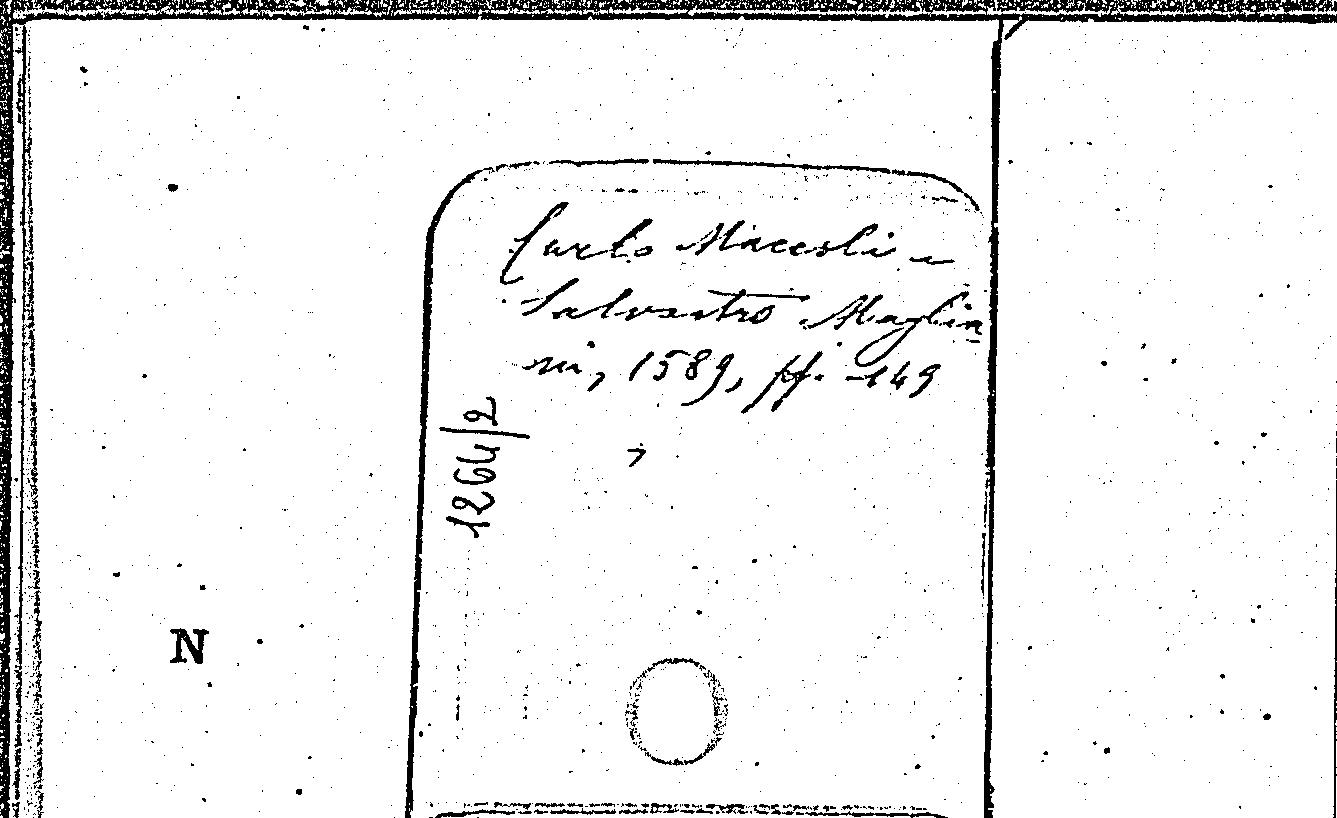 Carlo Macesli e
Salvestro Maglia
ni, 1589, ff. 149
1264/2
N